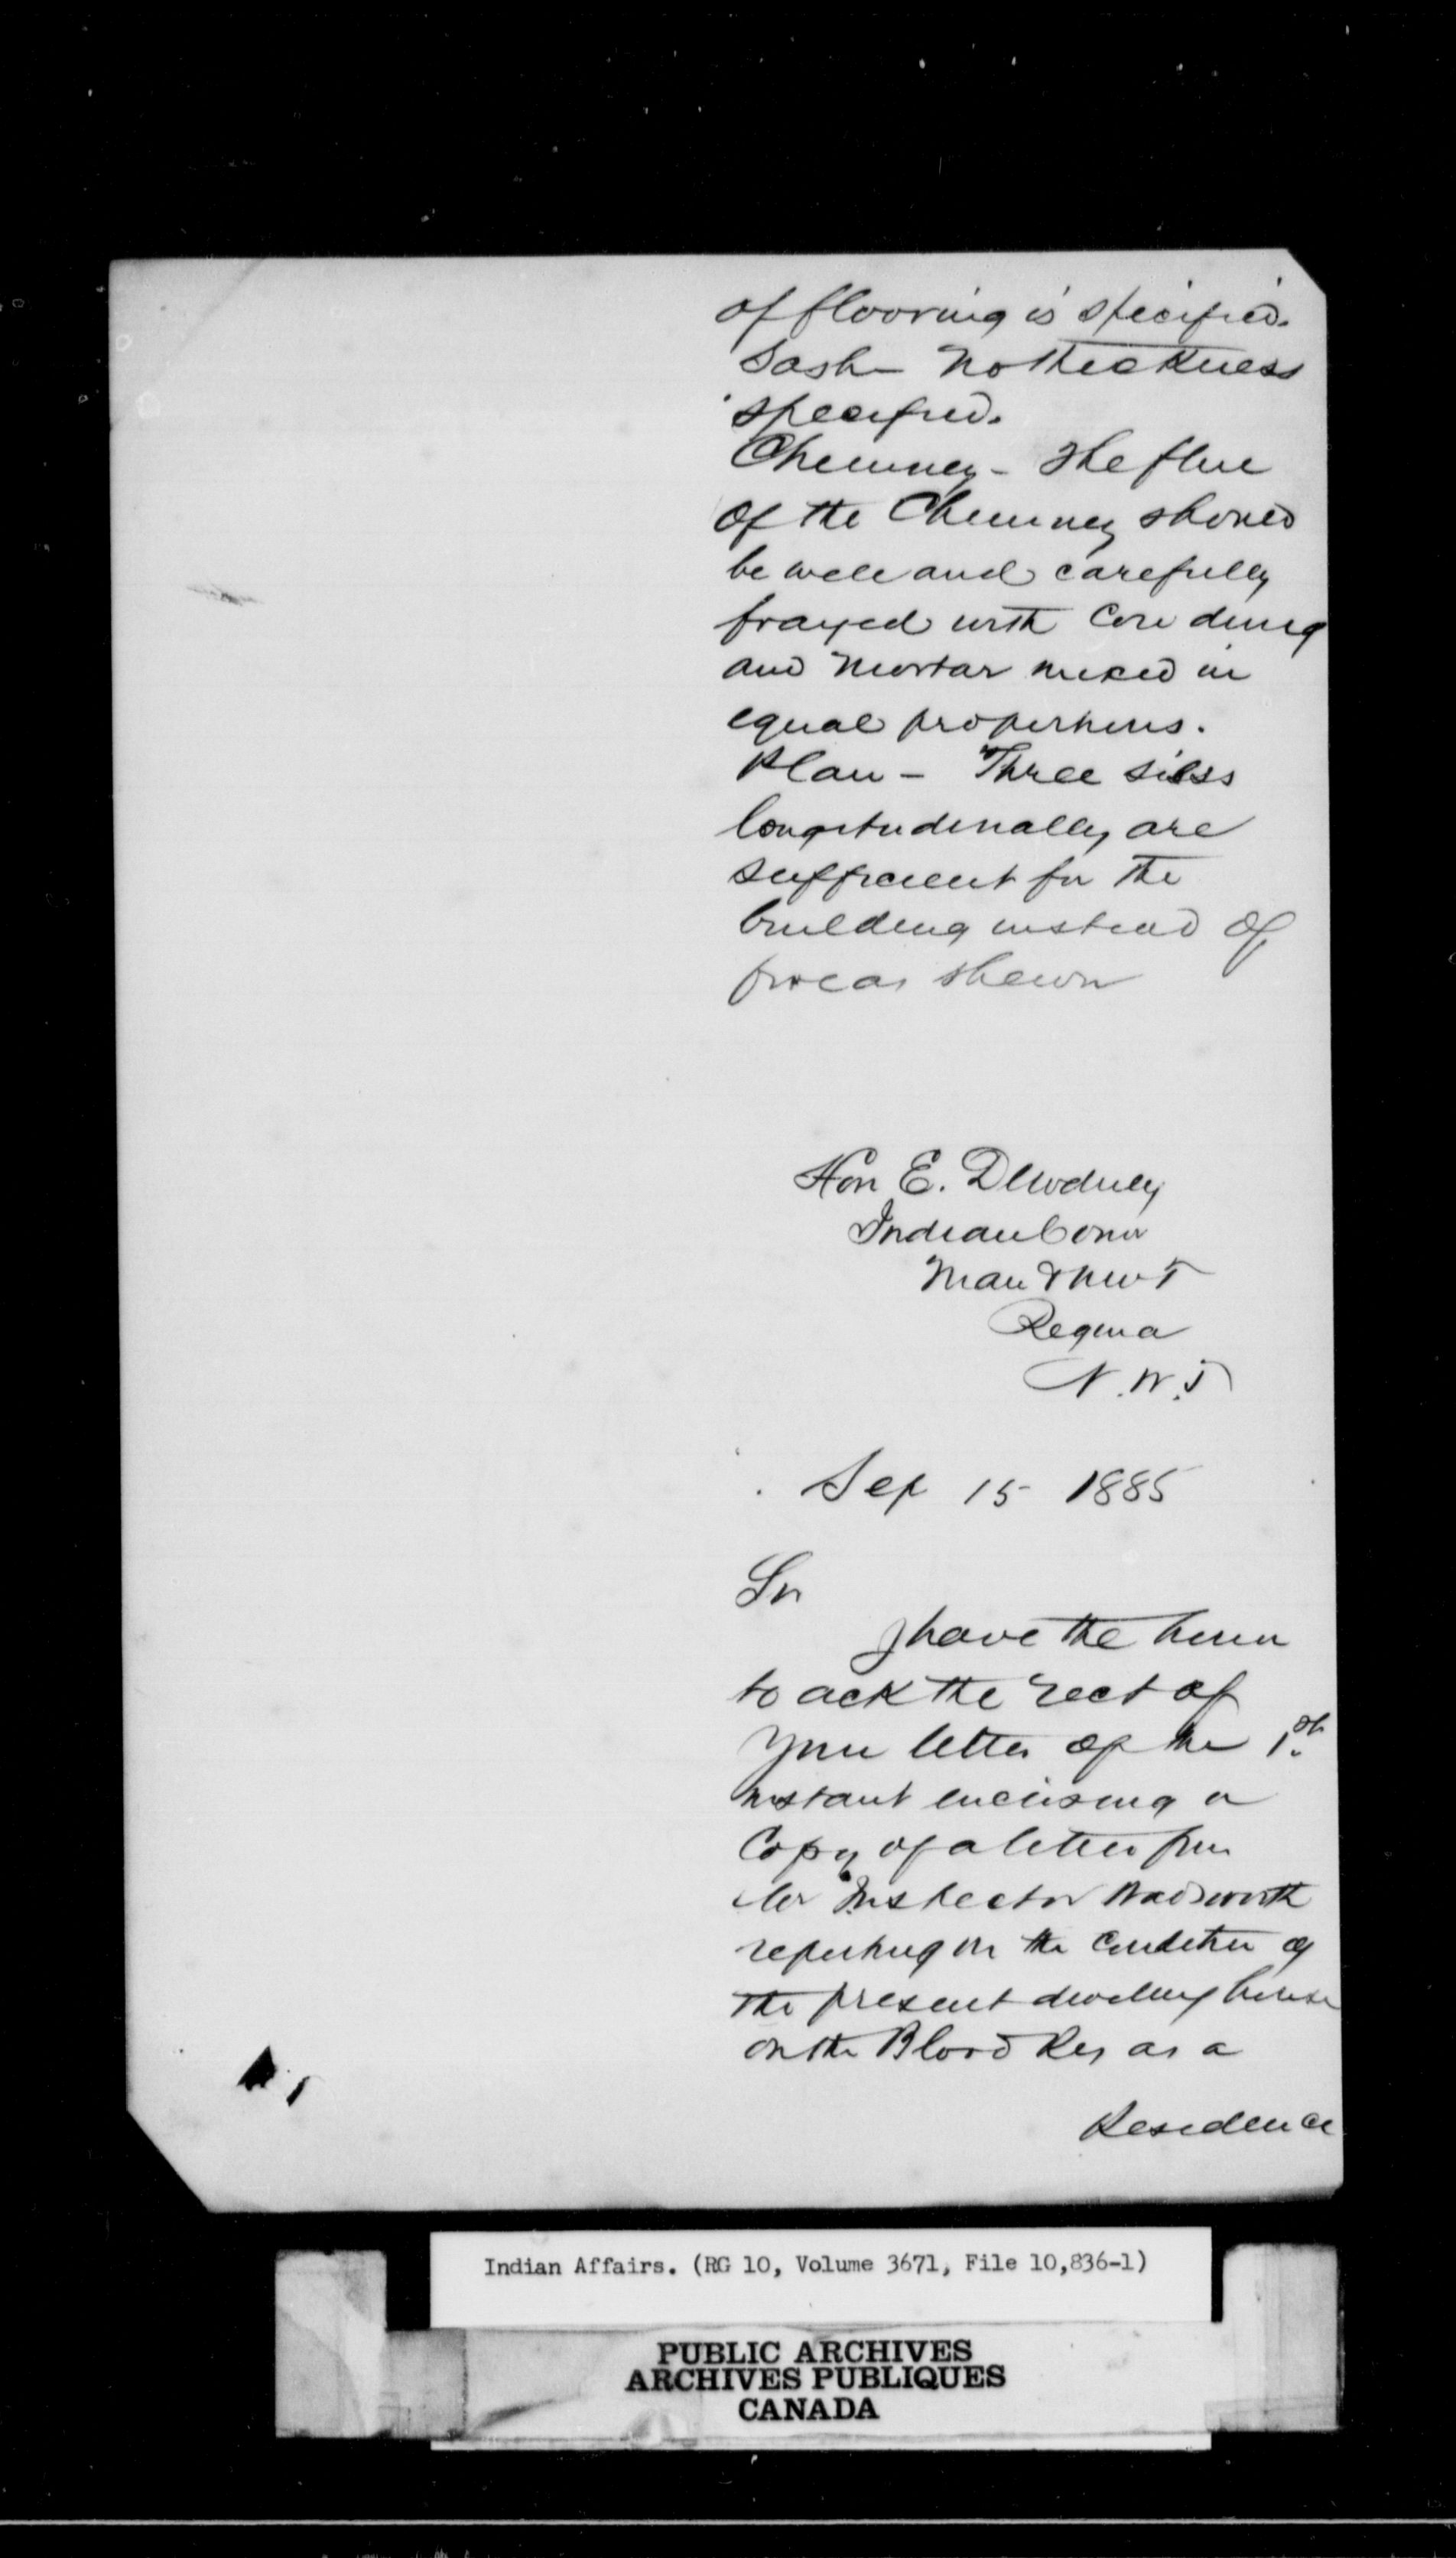 of flooring is specified.
Sash – No thickness
specified.
Chimney – The flue
of the Chimney should
be well and carefully
with Cow dung
and Mortar mixed in
equal proportions.
Plan – Three sills
longitudinally are
sufficient for the
building instead of
five as shewn
Hon E. Dewdney
Indian Comr
Man & NWT
Regina
N.W.T
Sep 15 1885
Sir
I have the honor
to ack the rect of
your letter of the 1st
instant enclosing a
Copy of a letter from
Mr Inspector Wadsworth
reporting on the Condition of
the present dwelling house
on the Blood Res as a
Residence
Indian Affairs. (RG 10, Volume 3671, File 10,836-1)
PUBLIC ARCHIVES
ARCHIVES PUBLIQUES
CANADA